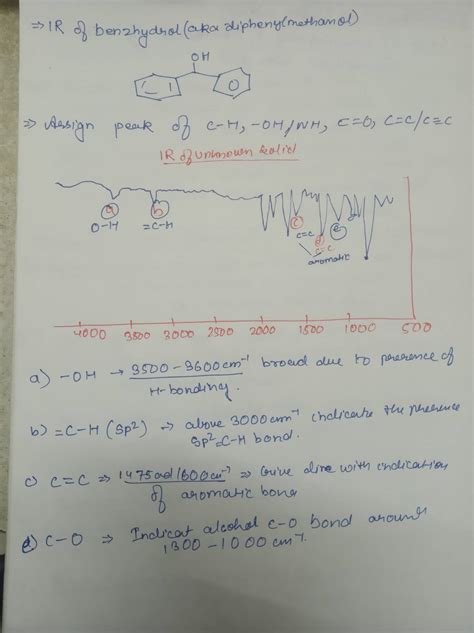 ⇒ IR of benzhydrol (aka diphenylmethanol)
OH
⇒ Assign peak of C-H, -OH/NH, C=O, C=C/C≡C
IR of unknown solid
a b c d e
O-H =C-H C=C C=C
aromatic
4000 3500 3000 2500 2000 1500 1000 500
a) -OH → 3500-3600cm⁻¹ broad due to presence of
H-bonding.
b) =C-H (Sp²) → above 3000cm⁻¹ indicate the presence
Sp² C-H bond.
c) C=C ⇒ 1475 and 1600cm⁻¹ ⇒ Give dire with indication
of aromatic bone
d) C-O ⇒ Indicat alcohol C-O bond around
1300-1000cm⁻¹.